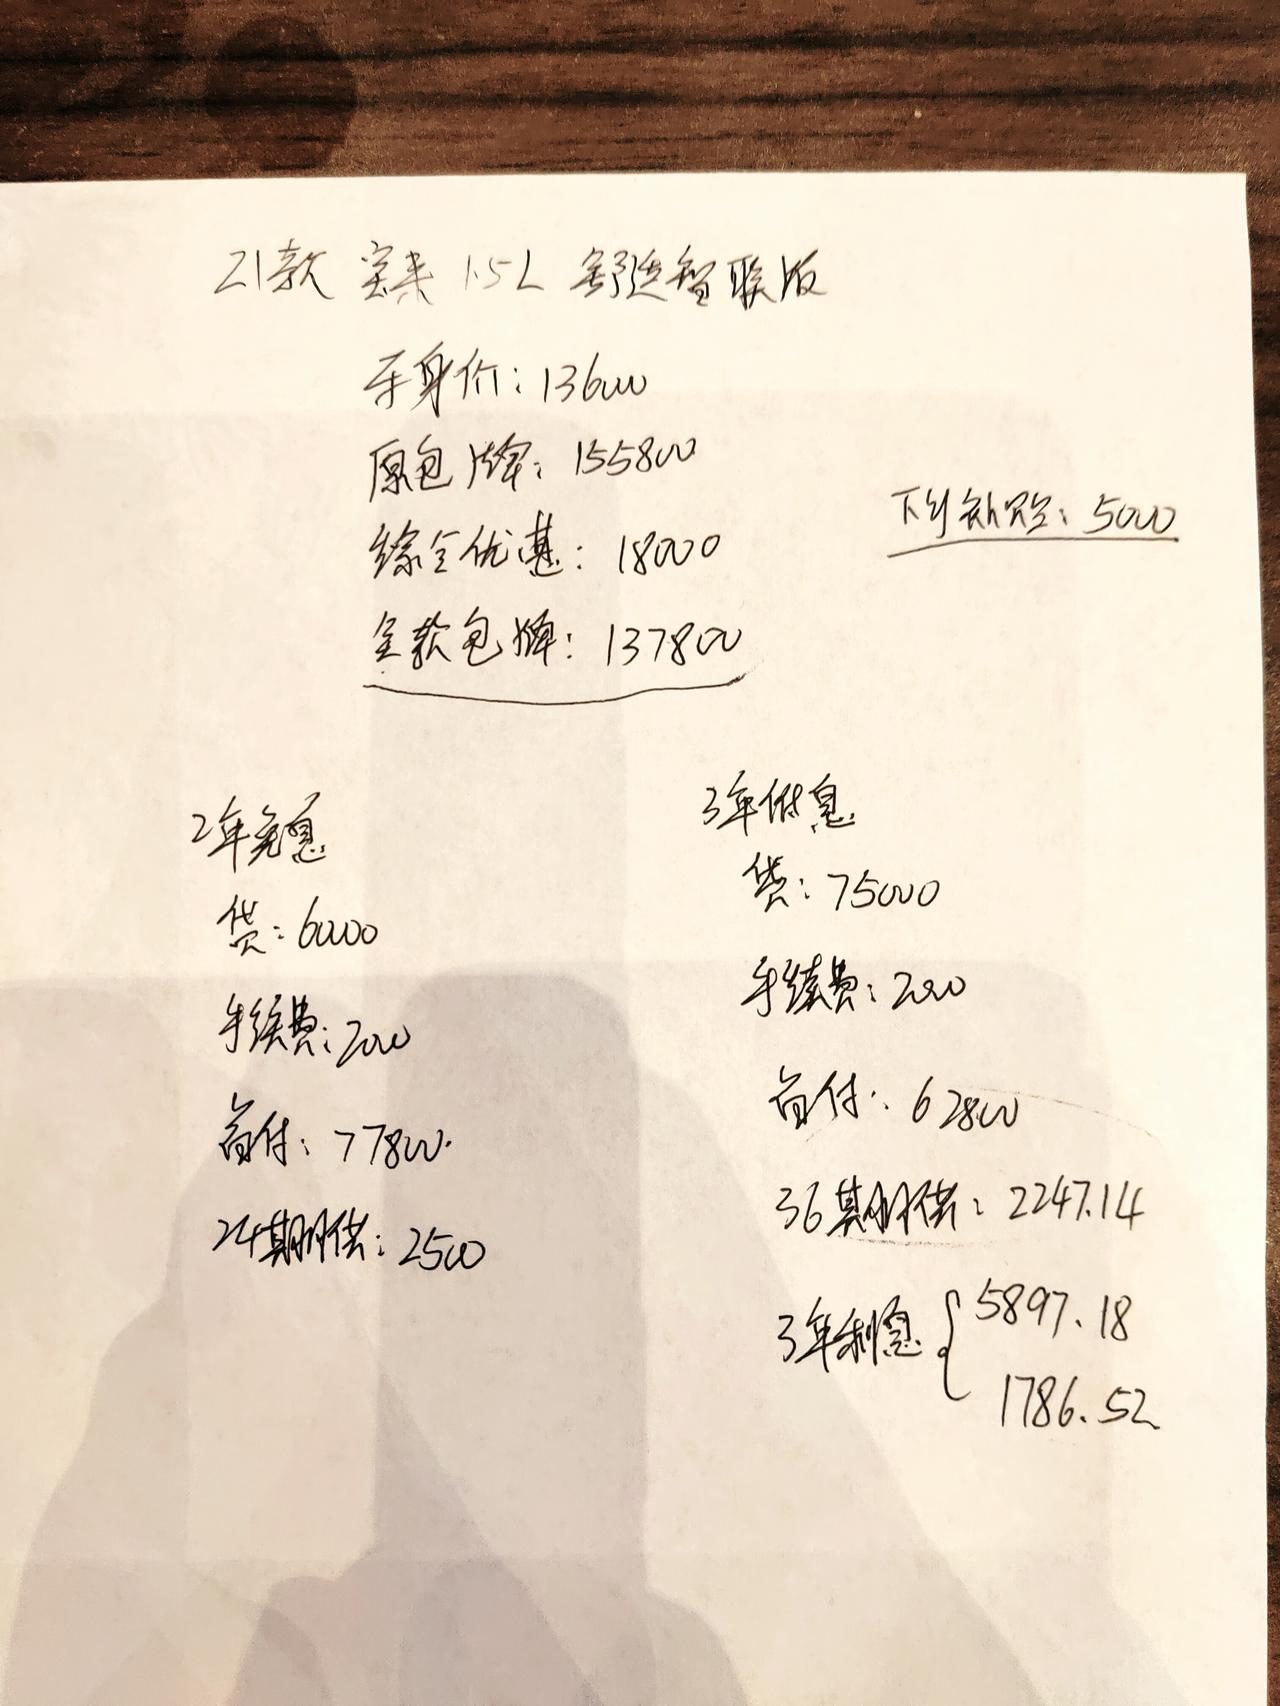 21款 宝来 1.5L 舒适智联版
车身价: 136000
原包牌: 155800
下乡补贴: 5000
综合优惠: 18000
全款包牌: 137800
2年免息
贷: 60000
手续费: 2000
首付: 77800
24期月供: 2500
3年付息
贷: 75000
手续费: 2000
首付: 62800
36期月供: 2247.14
3年利息 { 5897.18
1786.52